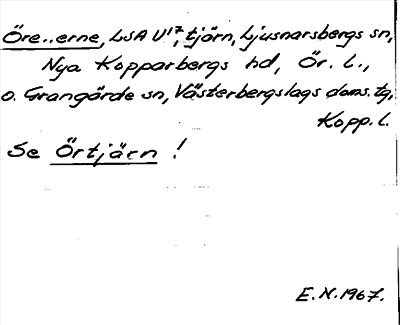 Öre..erne, LSA U¹⁷, tjörn, Ljusnarsbergs sn,
Nya Kopparbergs hd, Ör. l.,
o. Grangärde sn, Västerbergslags doms. tg,
Kopp. l.
Se Örtjärn !
E.N. 1967.